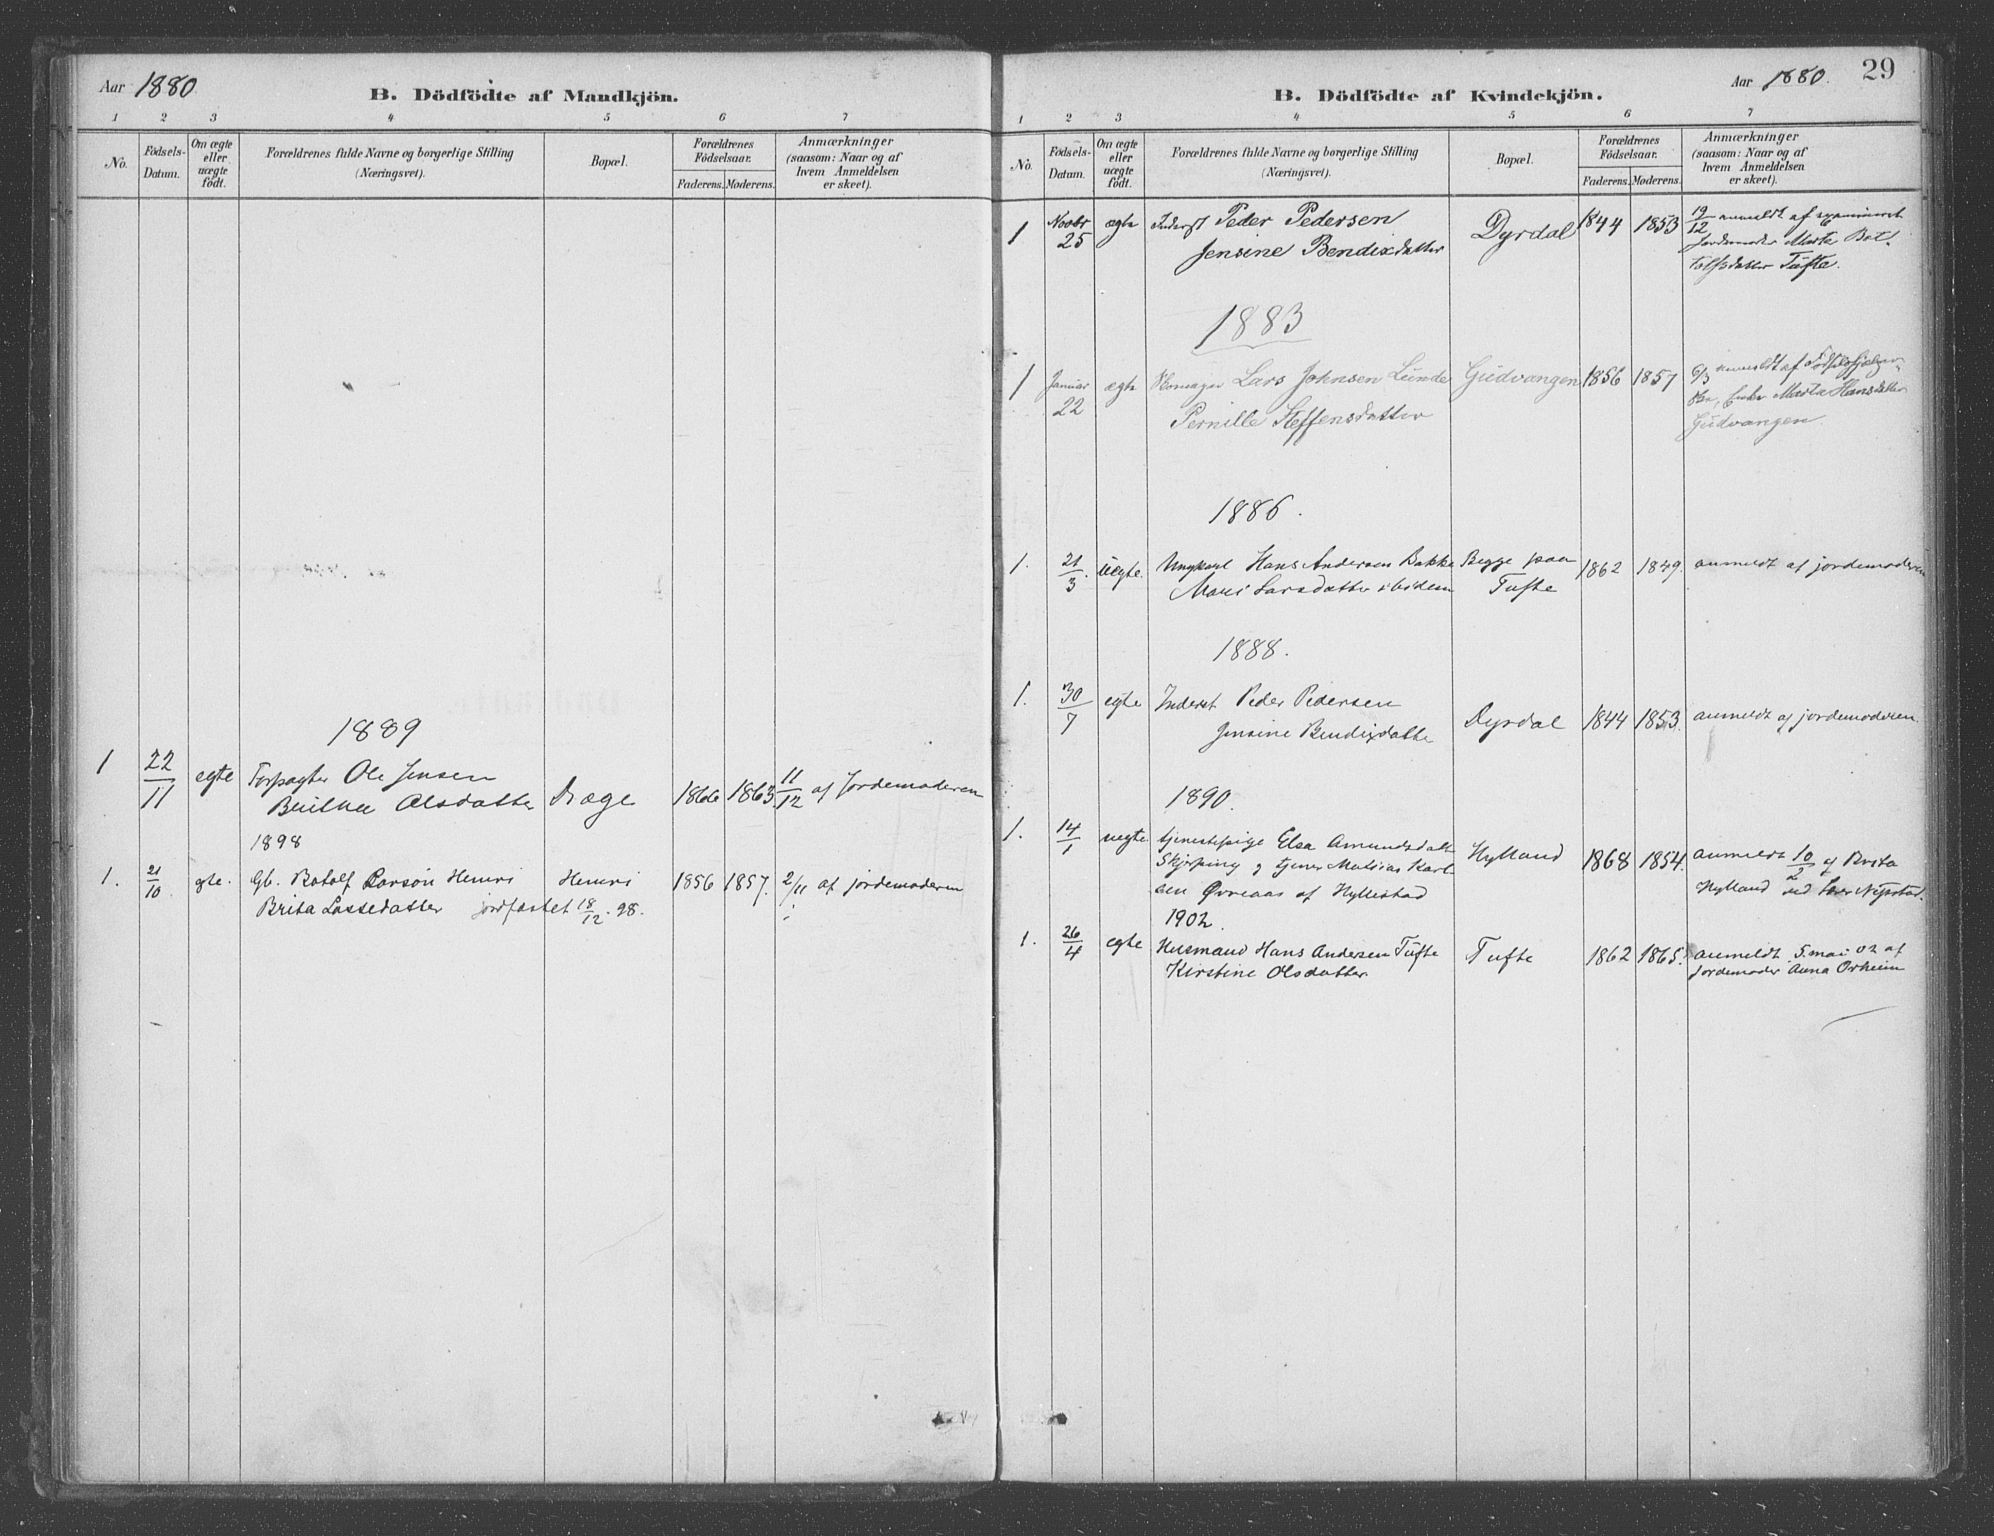 Aar 1880
B. Dödfödte af Mandkjön.
1 2 3 4 5 6 7
No.
Födsels-Datum.
Om ægte eller uægte födt.
Forældrenes fulde Navne og borgerlige Stilling (Næringsvei).
Bopæl.
Forældrenes Födselsaar.
Faderens. Moderens.
Anmærkninger (saasom: Naar og af hvem Anmeldelsen er skeet).
1889
1 22/11 egte Forpagter Ole Jensen
Olsdatter Dræge 1866 1863 11/12 af Jordemoderen
1898
1. 21/10 gte. Gb. Botolf Larsön Hemri Hemri 1856 1857. 2/11 af jordemoderen
Brita Lassedatter jordfæstet 18/12. 98.
Aar 1880. 29
B. Dödfödte af Kvindekjön.
1 2 3 4 5 6 7
No.
Födsels-Datum.
Om ægte eller uægte födt.
Forældrenes fulde Navne og borgerlige Stilling (Næringsvei).
Bopæl.
Forældrenes Födselsaar.
Faderens. Moderens.
Anmærkninger (saasom: Naar og af hvem Anmeldelsen er skeet).
1 Novbr 25 ægte Inderst Peder Pedersen Dyrdal 1844 1853 19/12 anmeldt af examineret
Jensine Bendixdatter Jordemoder Marta Bot-
tolfsdatter Tufte.
1883
1 Januar 22 ægte Lars Johnsen Lunde Gudvangen 1856 1857 6/3 anmeldt af Födselshjælper-
Pernille Steffensdatter ske, Enke Marta Hansdatter
Gudvangen.
1886.
1. 21/3. uegte. Ungkarl Hans Andersen Bakke Begge paa 1862 1849. anmeldt af jordemoderen
Mari Larsdatter ibidem Tufte
1888.
1. 30/7 egte Inderst Peder Pedersen Dyrdal 1844 1853. anmeldt af jordemoderen
Jensine Bendixdatter
1890.
1. 14/1 uegte tjenestepige Elsa Amundsdatt Hylland 1868 1854. anmeldt 10/2 af Brita
Skjerping og tjener Matias Karl- Hylland
sen Øvreaas af Hyllestad
1902.
1. 26/4 egte Husmand Hans Andersen Tufte Tufte 1862 1865. anmeldt 5. mai 02 af
Kirstine Olsdatter jordemoder Anna Orheim